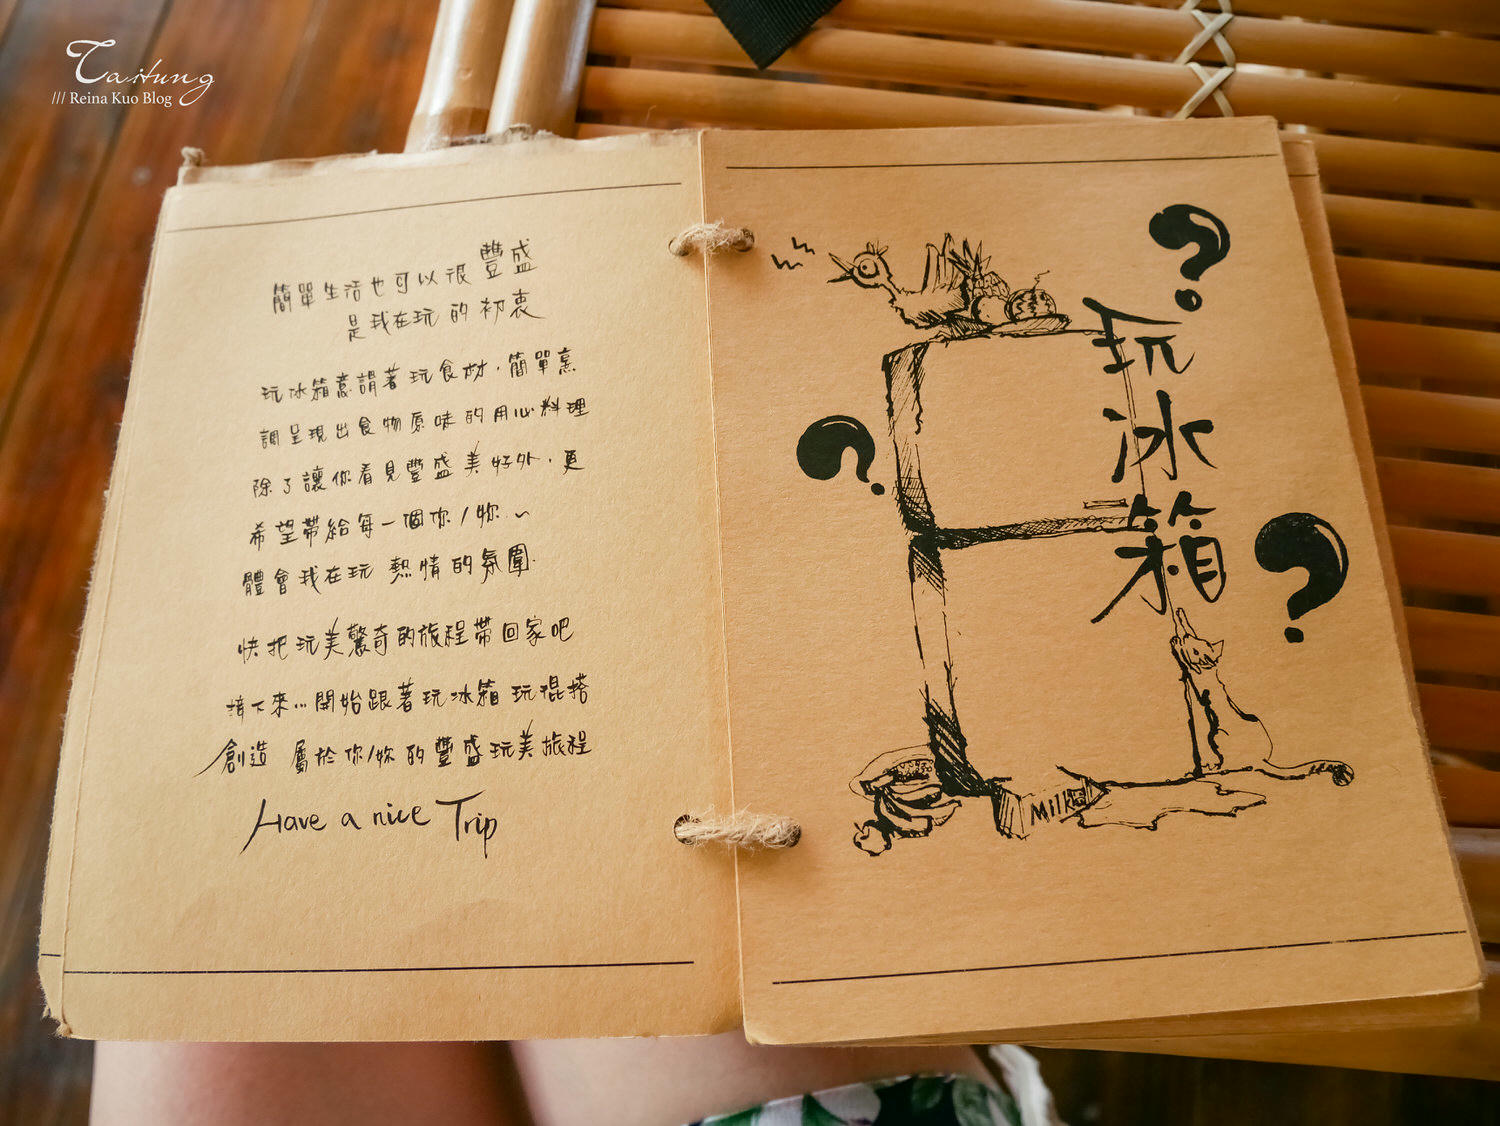 Taitung
/// Reina Kuo Blog
簡單生活也可以很豐盛
是我在玩的初衷
玩冰箱意謂著玩食材，簡單烹
調呈現出食物原味的用心料理
除了讓你看見豐盛美好外，更
希望帶給每一個你/妳~
體會我在玩 熱情的氛圍.
快把玩美驚奇的旅程帶回家吧
接下來...開始跟著玩冰箱 玩混搭
創造 屬於你/妳的豐盛玩美旅程
Have a nice Trip
玩冰箱
Milk